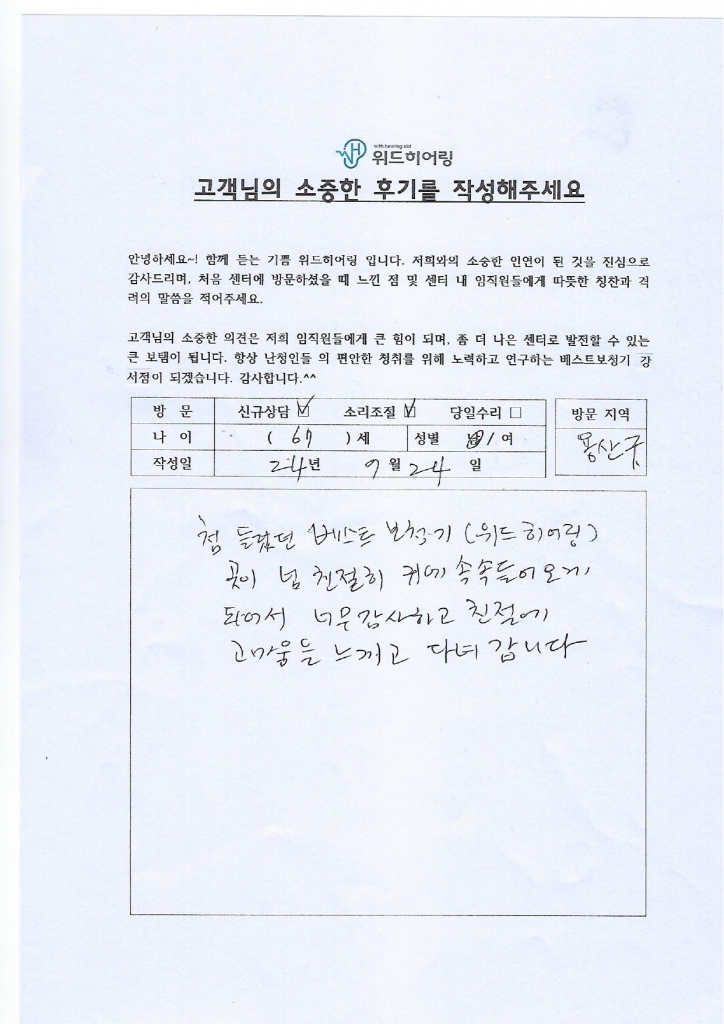 with hearing aid
위드히어링
고객님의 소중한 후기를 작성해주세요
안녕하세요~! 함께 듣는 기쁨 위드히어링 입니다. 저희와의 소중한 인연이 된 것을 진심으로
감사드리며, 처음 센터에 방문하셨을 때 느낀 점 및 센터 내 임직원들에게 따뜻한 칭찬과 격
려의 말씀을 적어주세요.
고객님의 소중한 의견은 저희 임직원들에게 큰 힘이 되며, 좀 더 나은 센터로 발전할 수 있는
큰 보탬이 됩니다. 항상 난청인들 의 편안한 청취를 위해 노력하고 연구하는 베스트보청기 강
서점이 되겠습니다. 감사합니다.^^
방 문 신규상담 ☑ 소리조절 ☑ 당일수리 □ 방문 지역
나 이 ( 67 ) 세 성별 남 / 여 용산구
작성일 24년 9월 24 일
첨 들렸던 베스트 보청기 (위드히어링)
곳이 넘 친절히 귀에 속속들어오게
되어서 너무감사하고 친절에
고마움을 느끼고 다녀 갑니다